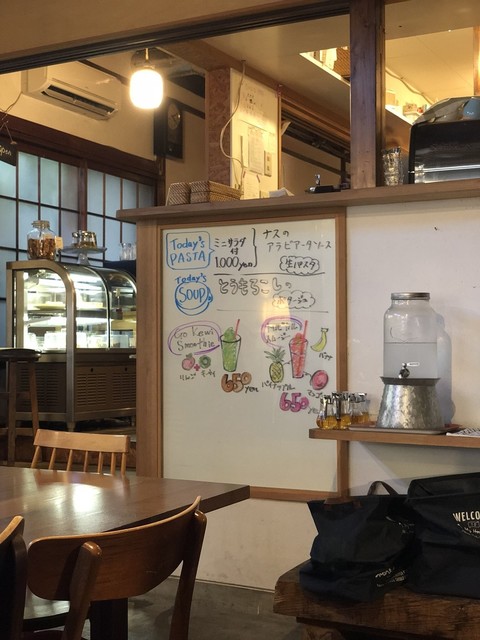 Today's
PASTA
ミニサラダ
付
1,000yen
ナスの
アラビアータソース
生パスタ
Today's
SOUP
とうもろこしの
ポタージュ
Go Kiwi
Smoothie
りんご
キーウィ
650yen
バナナ
パイナップル
650
WELCO